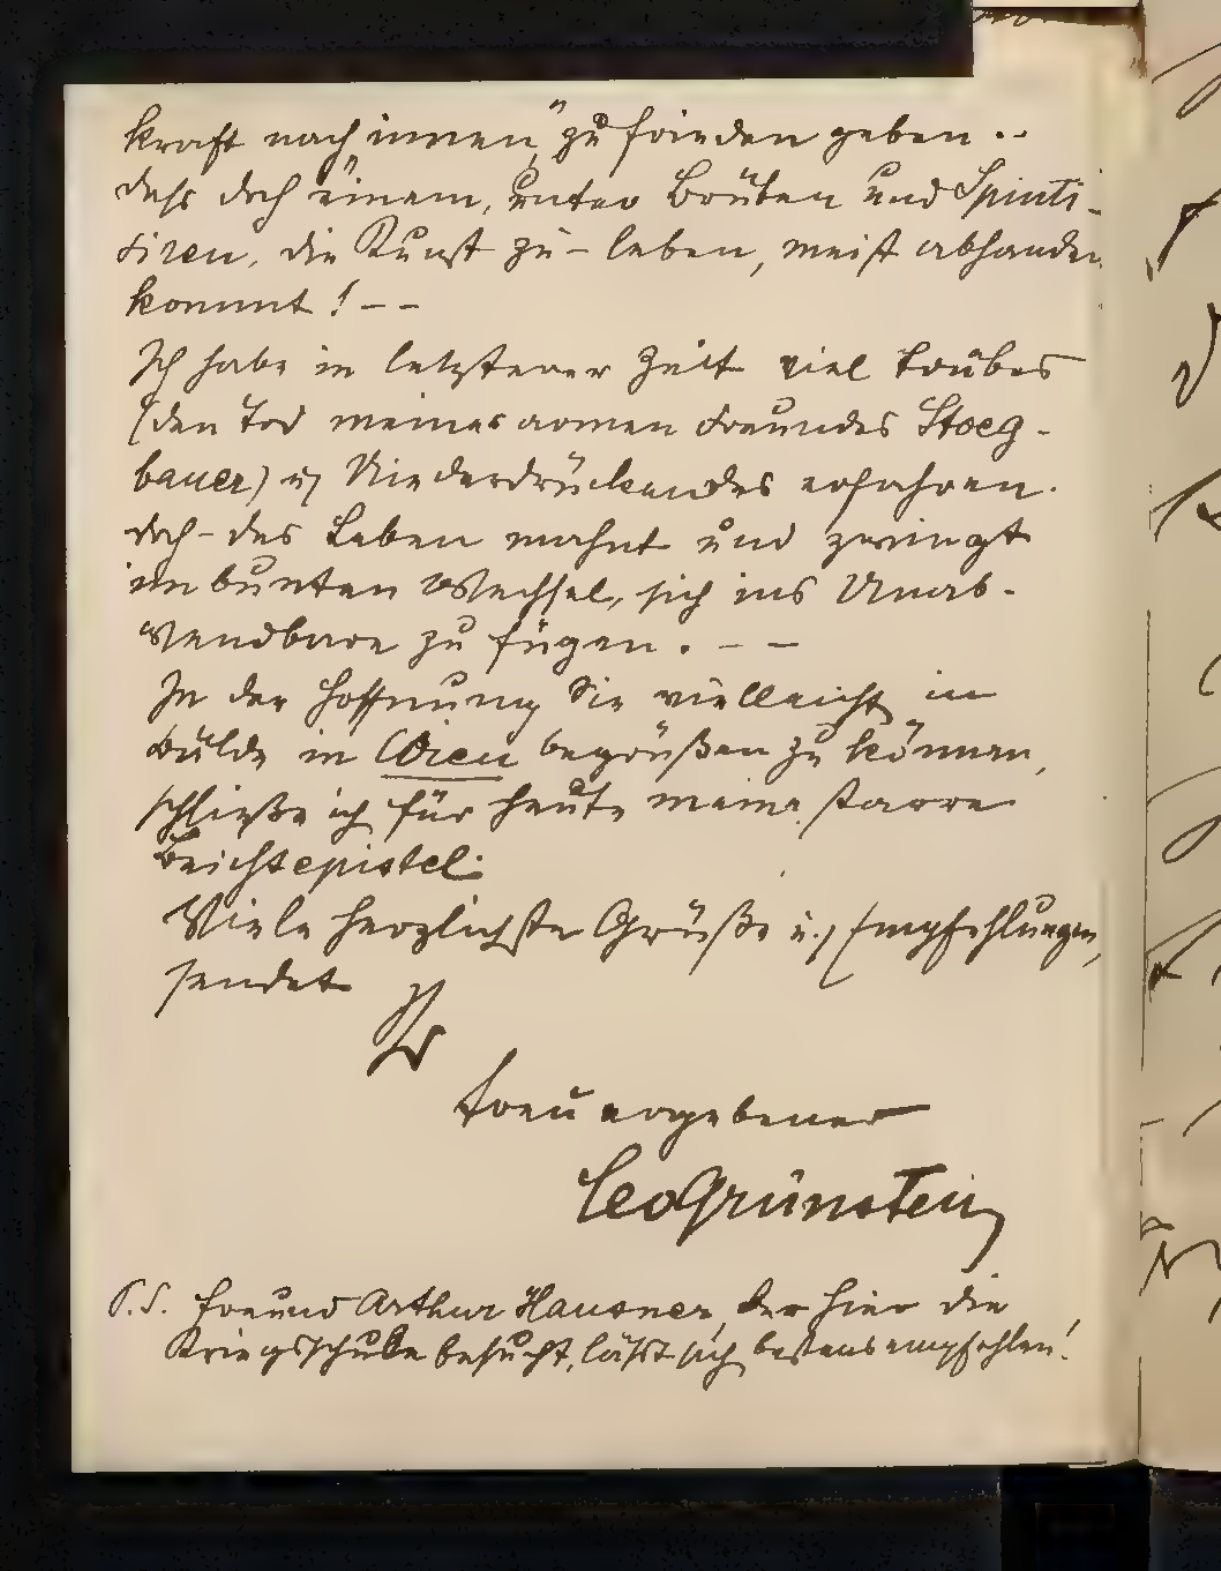 kraft nach innen" zufrieden geben ..
dass doch einem, unter Brüten und Spinti-
siren, die Kunst zu – leben, meist abhanden
kommt! – –
Ich habe in letzterer Zeit viel trübes
(den Tod meines armen Freundes Stoeg-
bauer) u. Niederdrückendes erfahren.
doch – das Leben mahnt und zwingt
im bunten Wechsel, sich ins Unab-
wendbare zu fügen. – –
In der Hoffnung Sie vielleicht in
Bälde in Wien begrüßen zu können,
schließe ich für heute meine starre
Beichtepistel.
Viele herzlichste Grüße u. Empfehlungen,
sendet
Ihr
treu ergebener
Leo Grünstein
P.S. Freund Arthur Hausner, der hier die
Kriegsschule besucht, lässt sich bestens empfehlen!